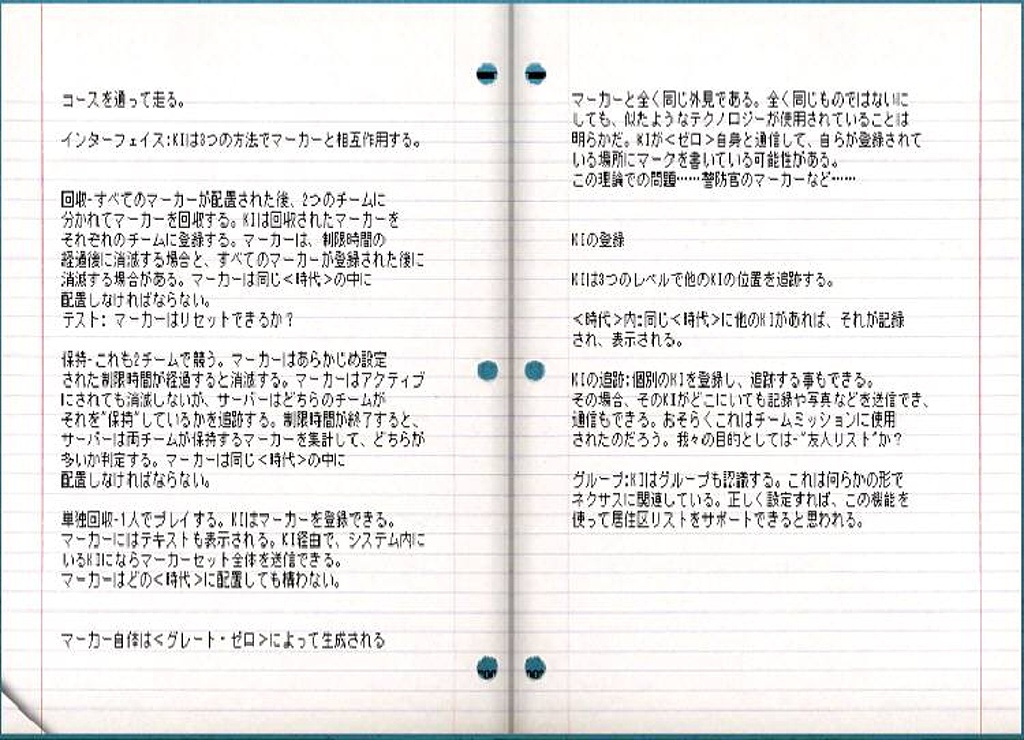 コースを通って走る。
インターフェイス:KIは3つの方法でマーカーと相互作用する。
回収-すべてのマーカーが配置された後、2つのチームに
分かれてマーカーを回収する。KIは回収されたマーカーを
それぞれのチームに登録する。マーカーは、制限時間の
経過後に消滅する場合と、すべてのマーカーが登録された後に
消滅する場合がある。マーカーは同じ<時代>の中に
配置しなければならない。
テスト: マーカーはリセットできるか?
保持-これも2チームで競う。マーカーはあらかじめ設定
された制限時間が経過すると消滅する。マーカーはアクティブ
にされても消滅しないが、サーバーはどちらのチームが
それを"保持"しているかを追跡する。制限時間が終了すると、
サーバーは両チームが保持するマーカーを集計して、どちらが
多いか判定する。マーカーは同じ<時代>の中に
配置しなければならない。
単独回収-1人でプレイする。KIはマーカーを登録できる。
マーカーにはテキストも表示される。KI経由で、システム内に
いるKIにならマーカーセット全体を送信できる。
マーカーはどの<時代>に配置しても構わない。
マーカー自体は<グレート・ゼロ>によって生成される
マーカーと全く同じ外見である。全く同じものではないに
しても、似たようなテクノロジーが使用されていることは
明らかだ。KIが<ゼロ>自身と通信して、自らが登録されて
いる場所にマークを書いている可能性がある。
この理論での問題……警防官のマーカーなど……
KIの登録
KIは3つのレベルで他のKIの位置を追跡する。
<時代>内:同じ<時代>に他のKIがあれば、それが記録
され、表示される。
KIの追跡:個別のKIを登録し、追跡する事もできる。
その場合、そのKIがどこにいても記録や写真などを送信でき、
通信もできる。おそらくこれはチームミッションに使用
されたのだろう。我々の目的としては-"友人リスト"か?
グループ:KIはグループも認識する。これは何らかの形で
ネクサスに関連している。正しく設定すれば、この機能を
使って居住区リストをサポートできると思われる。